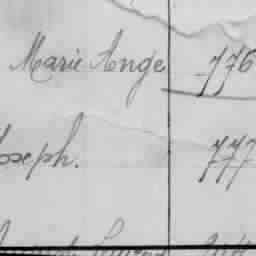 Marie Ange 776
Joseph. 777